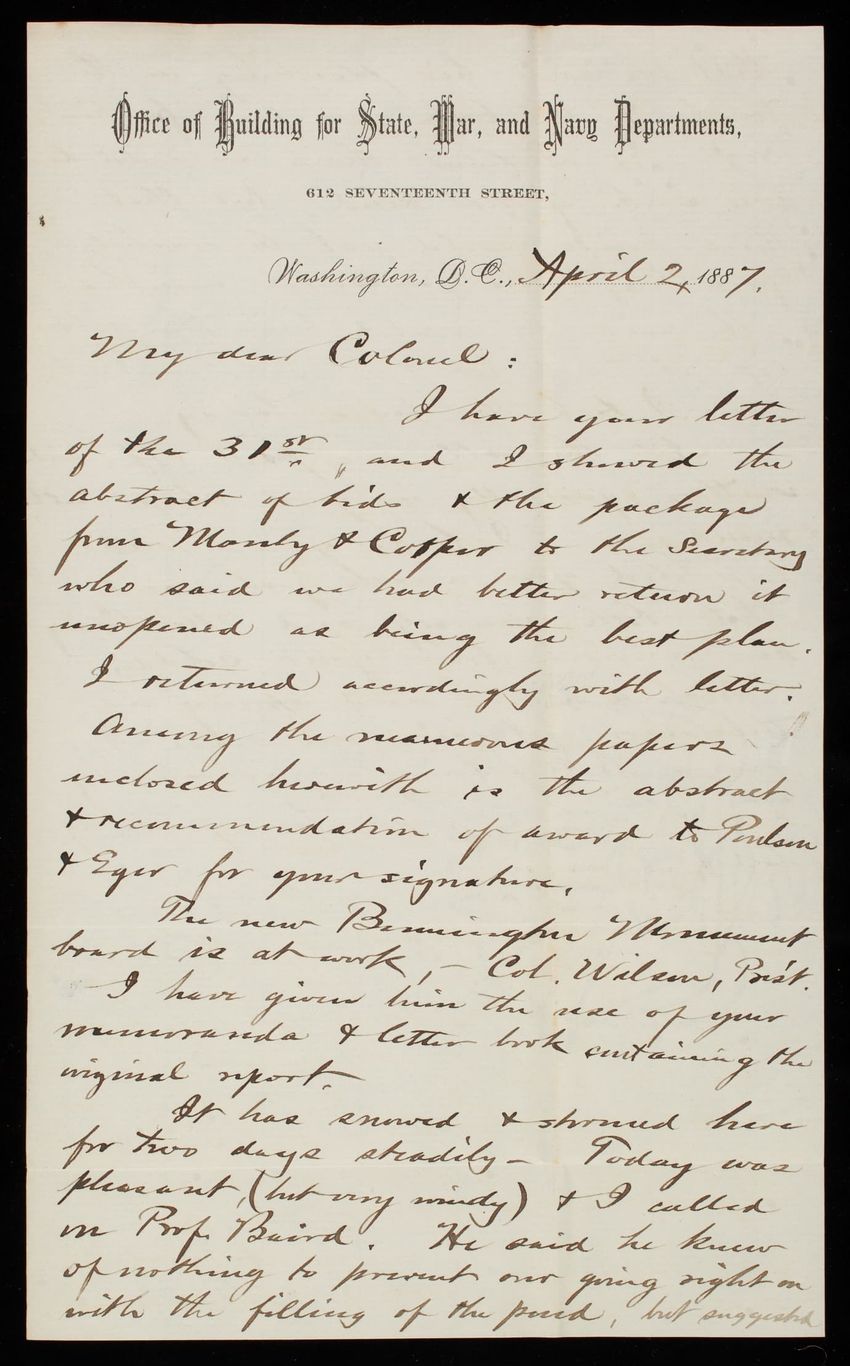 Office of Building for State, War, and Navy Departments,
612 SEVENTEENTH STREET,
Washington, D.C., April 2, 1887.
My dear Colonel :
I have your letter
of the 31st, and I showed the
abstract of bids & the package
from Manly & Cooper to the Secretary
who said we had better return it
unopened as being the best plan.
I returned accordingly with letter.
Among the numerous papers
inclosed herewith is the abstract
& recommendation of award to Poulson
& Eger for your signature.
The new Bennington Monument
board is at work, – Col. Wilson, Prest.
I have given him the use of your
memoranda & letter book containing the
original report.
It has snowed & stormed here
for two days steadily – Today was
pleasant, (but very windy) & I called
on Prof. Baird. He said he knew
of nothing to prevent our going right on
with the filling of the pond, but suggested